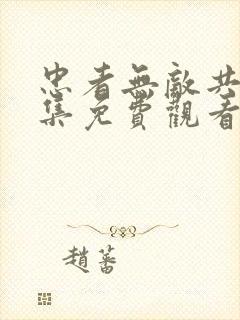 忠者無敵共
集免費觀看
趙蕃